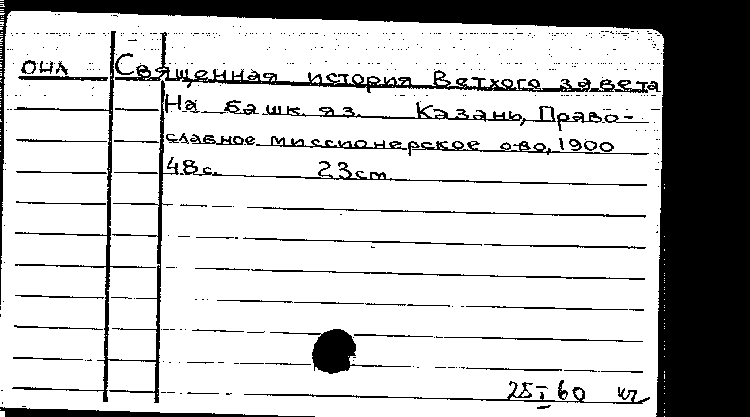 ОНЛ Священная история Ветхого завета
На башк. яз. Казань, Право-
славное миссионерское о-во, 1900
48с. 23см.
25 I 60